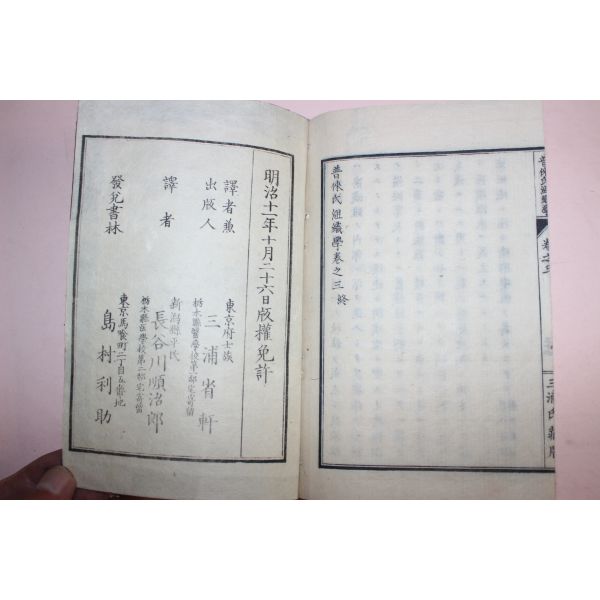 普俠氏組織學
卷之三
三浦氏藏版
普俠氏組織學卷之三終
明治十一年十月二十六日版權免許
譯者兼
出版人
東京府士族
三浦省軒
栃木縣醫學校第一部宅寄留
譯者
新潟縣平民
長谷川順治郎
栃木縣醫學校第二部宅寄留
發兌書林
東京馬喰町二丁目五番地
島村利助